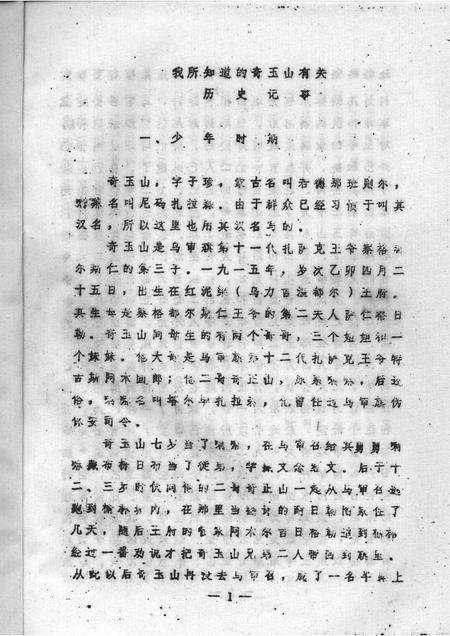 我所知道的奇玉山有关
历史记事
一、少年时期
奇玉山，字子珍，蒙古名叫若德那班尉尔，
喇嘛名叫尼码扎拉森。由于群众已经习惯于叫其
汉名，所以这里也用其汉名写的。
奇玉山是乌审旗第十一代扎萨克王爷察格
尔斯仁的第三子。一九一五年，岁次乙卯四月二
十五日，出生在红泥（乌力百温都尔）王府。
其生母是察格都尔斯仁王爷的第二夫人萨仁格日
勒。奇玉山同母生的有两个哥哥，三个姐姐和一
个妹妹。他大哥是乌审旗第十二代扎萨克王爷特
古斯阿木固郎；他二哥奇正山，原系喇嘛，后还
俗，喇嘛名叫塔尔毕扎拉森，他曾任过乌审旗仿
保安司令。
奇玉山七岁当了喇嘛，在乌审召给其舅舅喇
嘛布扬日布当了徒弟，学文念藏文。后于十
二、三岁时伙同他的二哥奇正山一起从乌审召逃
跑到榆林城内，在那里当
几天，随后王府的管家阿木尔百日格勒追到榆林
经过一番劝说才把奇玉山兄弟二人带回到
从此以后奇玉山再没去乌审召，成了一名 上
— 1 —